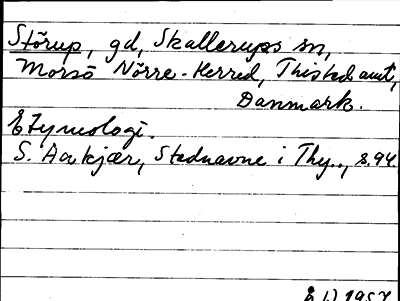 Störup, gd, Skallerups sn,
Morsö Nörre-Herred, Thisted amt,
Danmark.
Etymologi.
S. Aakjær, Stednavne i Thy.., s.94.
1957